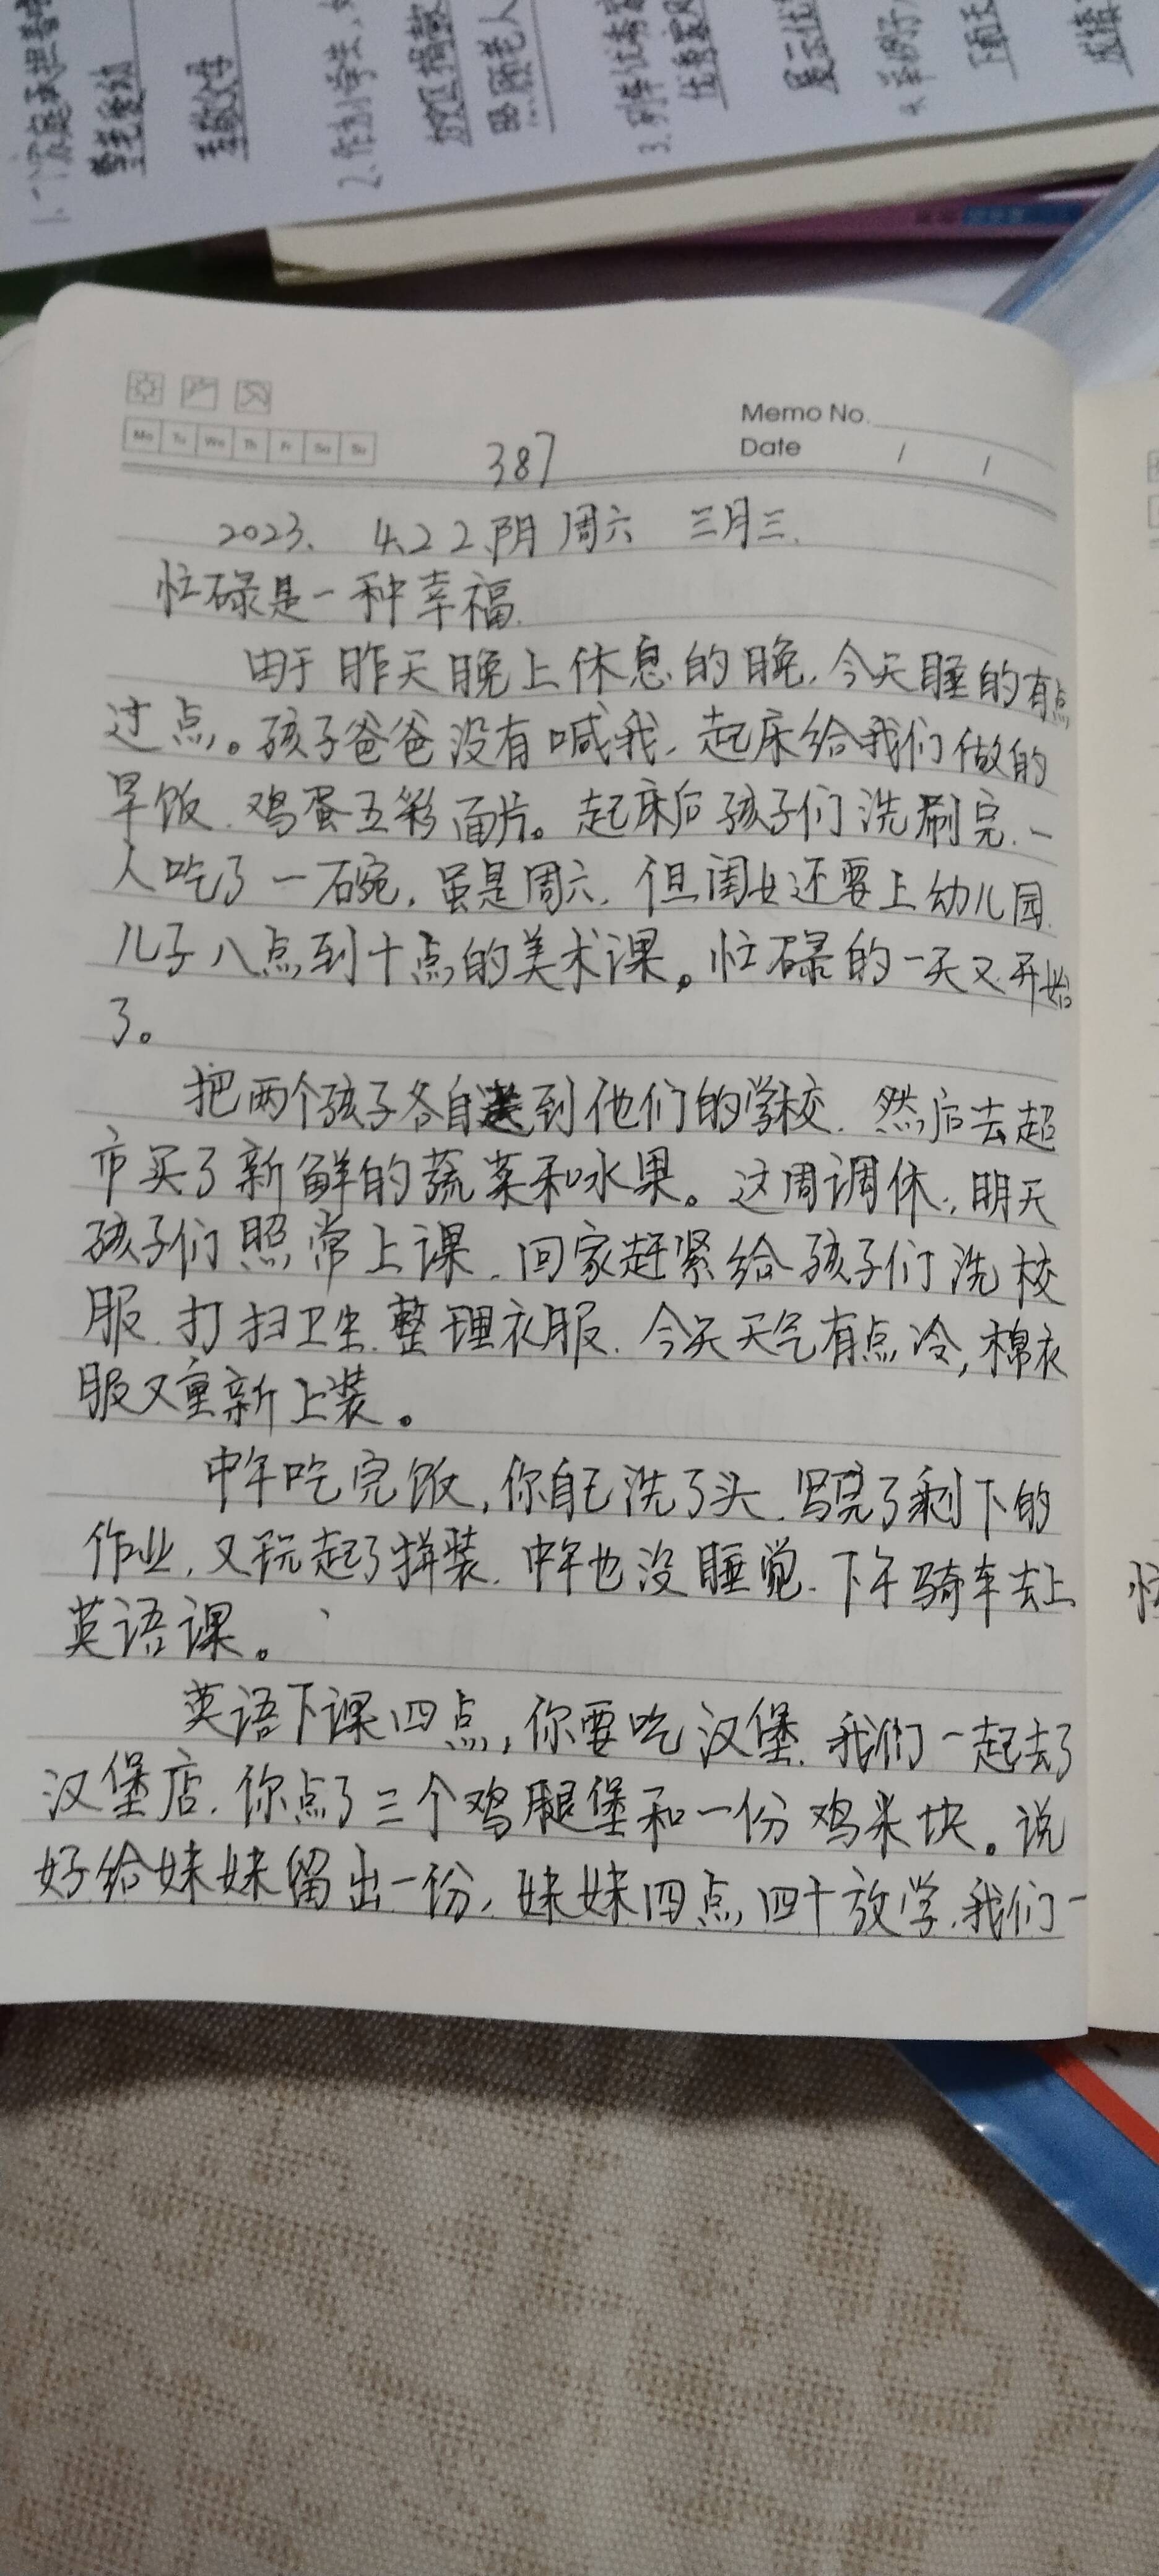 Memo No.
Mo Tu We Th Fr Sa Su
Date / /
387
2023. 4.22.阴 周六 三月三.
忙碌是一种幸福.
由于昨天晚上休息的晚,今天睡的有点
过点。孩子爸爸没有喊我,起床给我们做的
早饭.鸡蛋五彩面片。起床后孩子们洗刷完.一
人吃了一碗,虽是周六,但闺女还要上幼儿园.
儿子八点到十点的美术课。忙碌的一天又开始
了。
把两个孩子各自送到他们的学校.然后去超
市买了新鲜的蔬菜和水果。这周调休,明天
孩子们照常上课.回家赶紧给孩子们洗校
服.打扫卫生.整理衣服.今天天气有点冷,棉衣
服又重新上装。
中午吃完饭,你自己洗了头.写完了剩下的
作业,又玩起了拼装.中午也没睡觉.下午骑车去上
英语课。
英语下课四点,你要吃汉堡.我们一起去了
汉堡店.你点了三个鸡腿堡和一份鸡米块。说
好给妹妹留出一份,妹妹四点四十放学.我们一